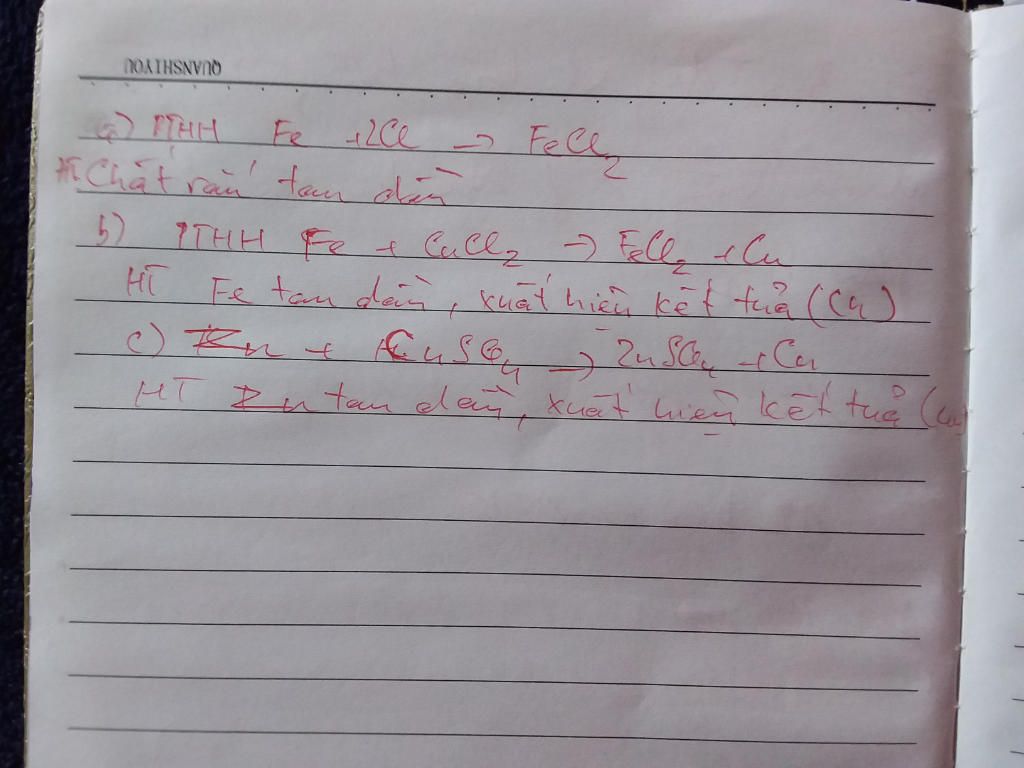 QUANSHIYOU
a) PTHH Fe +2Cl → FeCl2
HT Chất rắn tan dần
b) PTHH Fe + CuCl2 → FeCl2 + Cu
HT Fe tan dần, xuất hiện kết tủa (Cu)
c) Zn + CuSO4 → ZnSO4 + Cu
HT Zn tan dần, xuất hiện kết tủa (Cu)